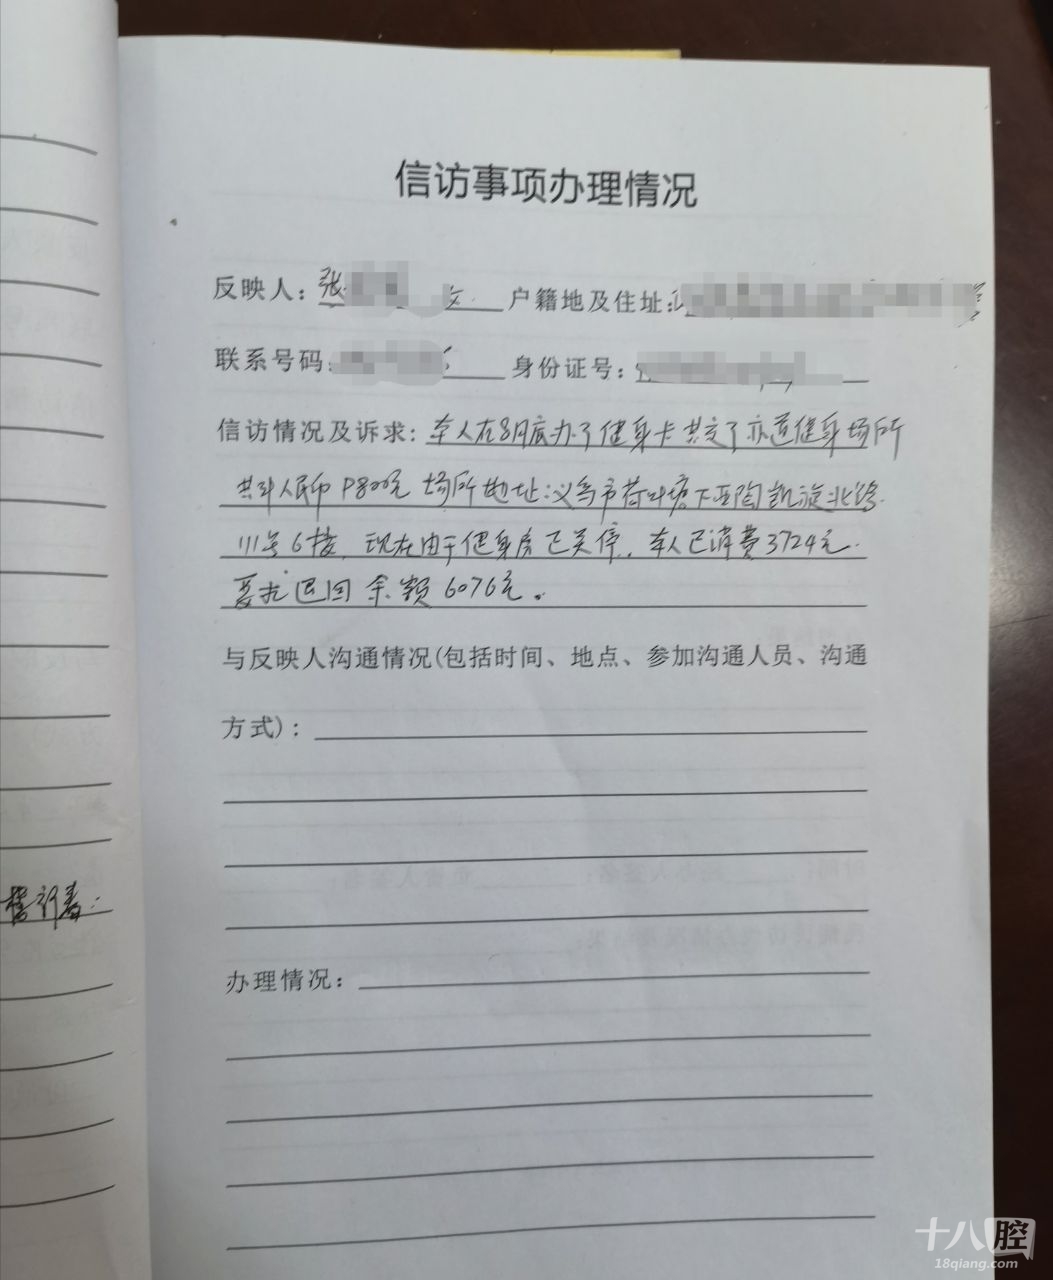 信访事项办理情况
反映人：张 文 户籍地及住址：
联系号码： 身份证号：
信访情况及诉求：本人在8月底办了健身卡共交了亦道健身场所
共计人民币9800元 场所地址：义乌市荷叶塘下西陶凯旋北路
111号6楼，现在由于健身房已关停，本人已消费3724元.
要求退回余额6076元。
与反映人沟通情况(包括时间、地点、参加沟通人员、沟通
方式)：
办理情况：
十八腔
18qiang.com